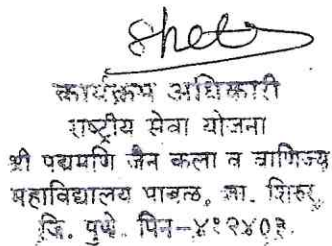 कार्यक्रम अधिकारी
राष्ट्रीय सेवा योजना
श्री पद्ममणि जैन कला व वाणिज्य
महाविद्यालय पाबळ, ता. शिरुर,
जि. पुणे. पिन-४१२४०३.